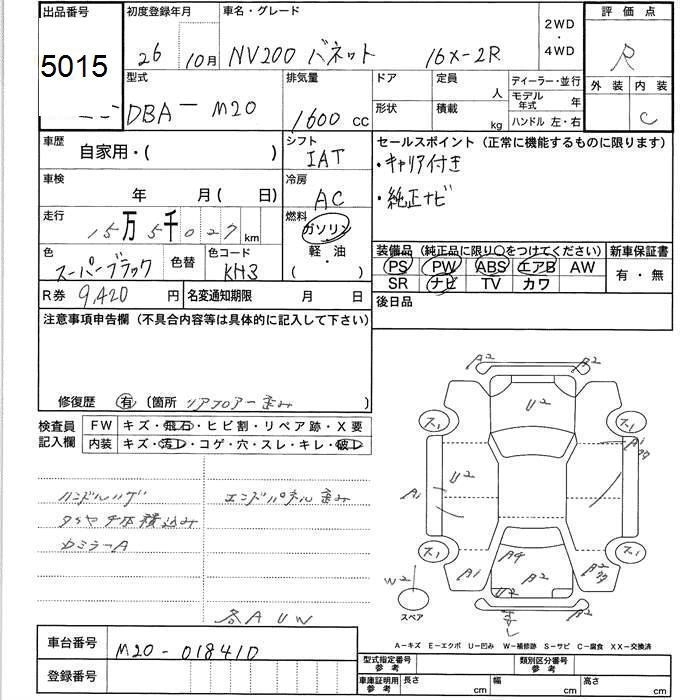 出品番号
5015
初度登録年月
26 10月
車名・グレード
NV200 バネット 16X-2R
2WD
・
4WD
評価点
R
外装 内装
C
型式
DBA-M20
排気量
1600 cc
ドア
形状
定員 人
積載 kg
ディーラー・並行
モデル年式 年
ハンドル 左・右
車歴
自家用・( )
シフト
IAT
セールスポイント (正常に機能するものに限ります)
・キャリア付き
・純正ナビ
車検
年 月( 日)
冷房
AC
走行
15万5千027 km
燃料
ガソリン
軽・油
・( )
色
スーパーブラック
色替
色コード
KH3
装備品 (純正品に限り○をつけてください)
PS PW ABS エアB AW
SR ナビ TV カワ
新車保証書
有・無
R券 9,420 円
名変通知期限 月 日
後日品
注意事項申告欄 (不具合内容等は具体的に記入して下さい)
修復歴 有 (箇所 リアフロアー歪み )
検査員記入欄
FW キズ・飛石・ヒビ割・リペア跡・X要
内装 キズ・汚レ・コゲ・穴・スレ・キレ・破レ
ハンドルハゲ
エンドパネル歪み
タイヤ4本積込み
カミラーA
各AUW
A2 A2
U2
ス1 ス1
A1
U2
A1
ス1 ス1
A4
A1
B2
B2
W2
U2
B2
スペア
A-キズ E-エクボ U-凹み W-補修跡 S-サビ C-腐食 XX-交換済
車台番号
M20-018410
登録番号
型式指定番号
参考
類別区分番号
参考
車庫証明用
参考
長さ cm
幅 cm
高さ cm